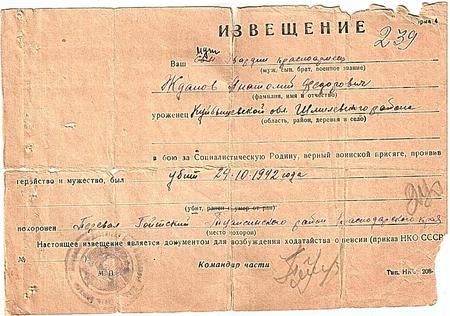 ИЗВЕЩЕНИЕ
239
Ваш муж гвардии красноармеец
(муж, сын, брат, военное звание)
Жданов Анатолий Федорович
(фамилия, имя и отчество)
уроженец Куйбышевской обл.
(область, район, деревня и село)
в бою за Социалистическую Родину, верный воинской присяге, проявив
геройство и мужество, был убит 29.10.1942 года
(убит, ранен и умер от ран)
похоронен Перевал Гойтский Туапсинского район Краснодарского края
(место похорон)
Настоящее извещение является документом для возбуждения ходатайства о пенсии (приказ НКО СССР
Командир части
М. П.